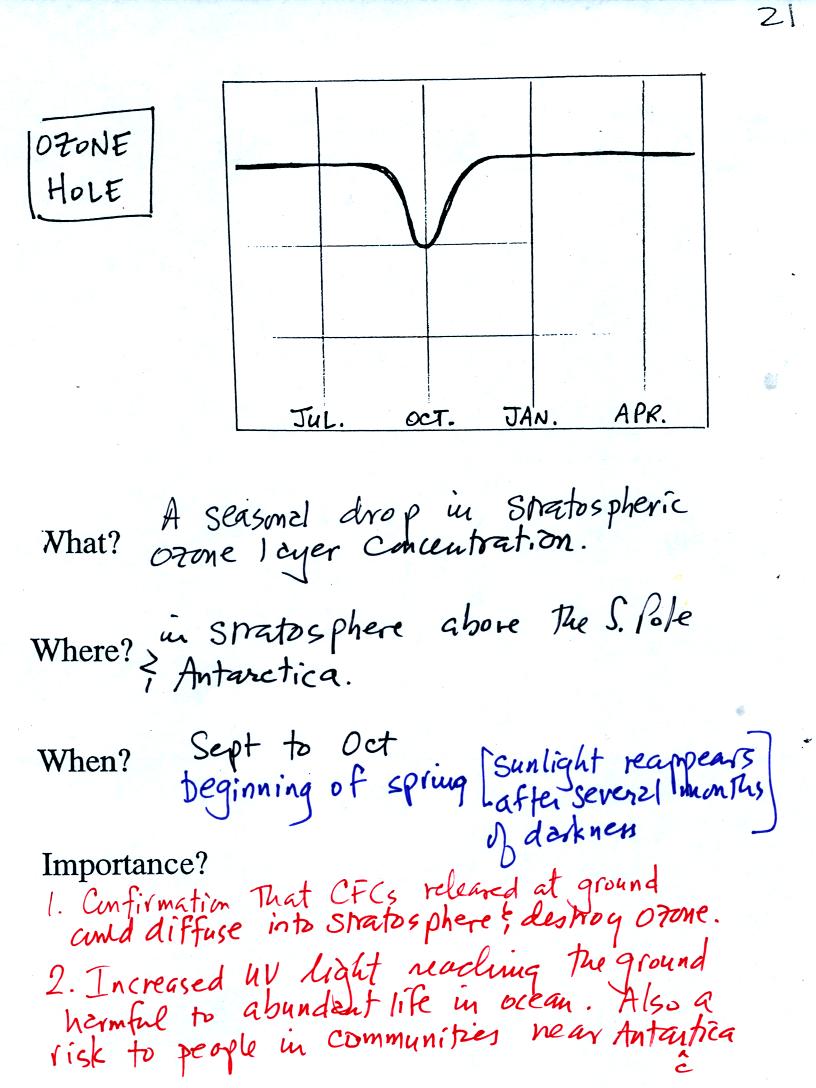 21
OZONE
HOLE
JUL. OCT. JAN. APR.
What? A seasonal drop in stratospheric
ozone layer concentration.
Where? in stratosphere above the S. Pole
& Antarctica.
When? Sept to Oct
beginning of spring [sunlight reappears
after several months
of darkness]
Importance?
1. Confirmation that CFCs released at ground
could diffuse into stratosphere & destroy ozone.
2. Increased UV light reaching the ground
harmful to abundant life in ocean. Also a
risk to people in communities near Antartica
^
c